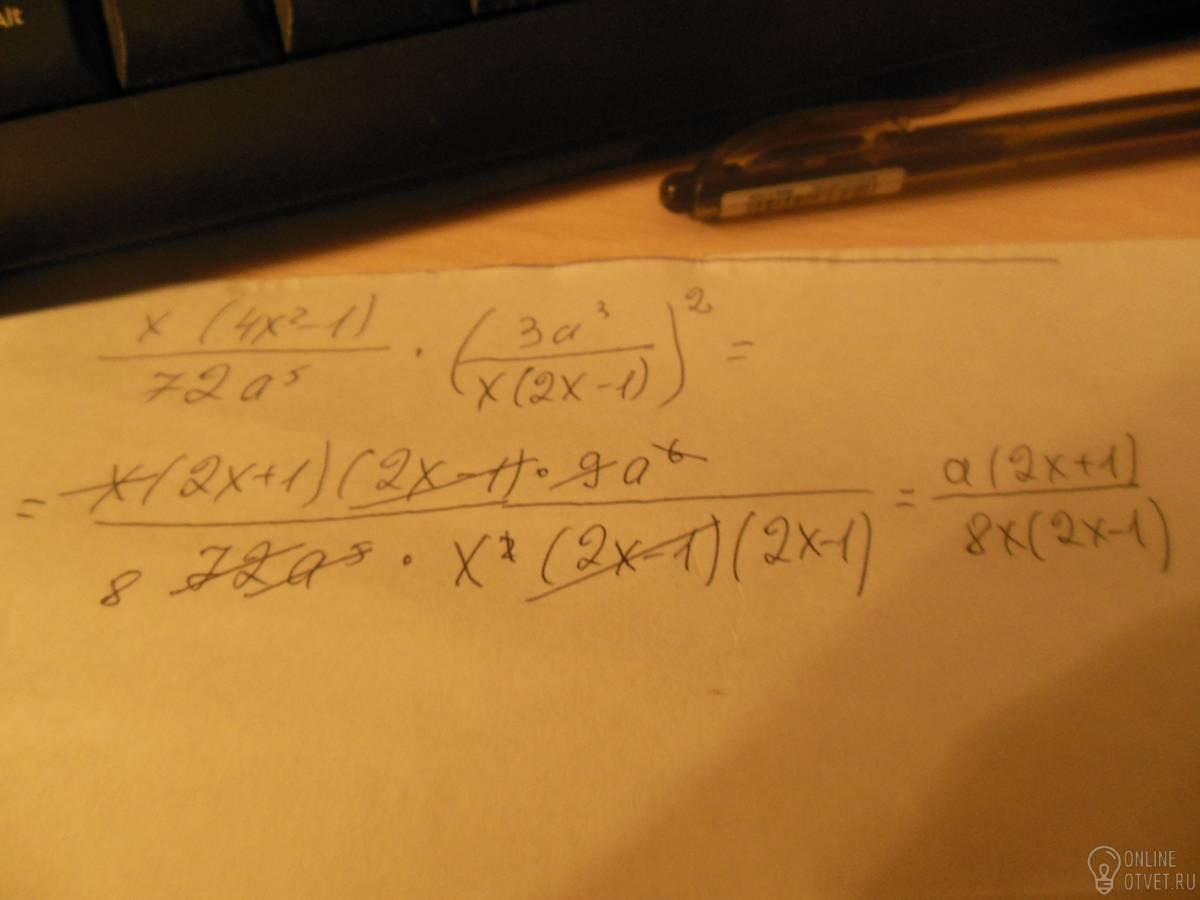 Alt
x (4x²-1) / 72a⁵ · (3a³ / x(2x-1))² =
= x(2x+1)(2x-1)·9a⁶ / 8 72a⁵ · x² (2x-1)(2x-1) = a(2x+1) / 8x(2x-1)
ONLINE
OTVET.RU